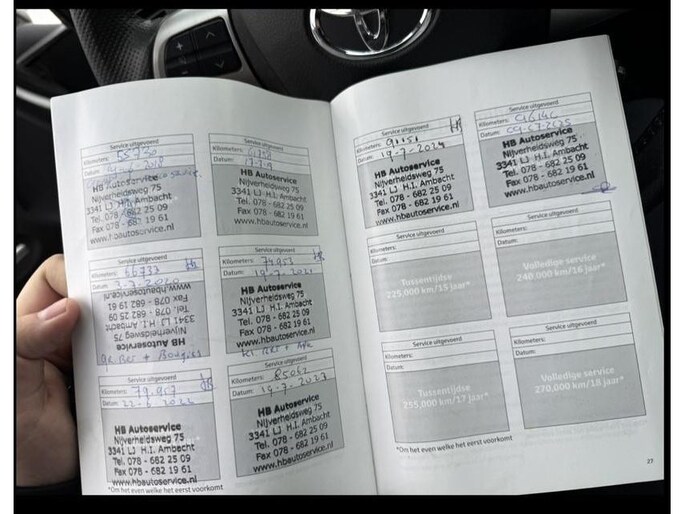 Service uitgevoerd
Kilometers:
Datum:
HB Autoservice
Nijverheidsweg 75
3341 LJ H.I. Ambacht
Tel. 078 - 682 25 09
Fax 078 - 682 19 61
www.hbautoservice.nl
Service uitgevoerd
Kilometers:
Datum:
HB Autoservice
Nijverheidsweg 75
3341 LJ H.I. Ambacht
Tel. 078 - 682 25 09
Fax 078 - 682 19 61
www.hbautoservice.nl
Service uitgevoerd
Kilometers: 66733
Datum:
www.hbautoservice.nl
Fax 078 - 682 19 61
Tel. 078 - 682 25 09
3341 LJ H.I. Ambacht
Nijverheidsweg 75
HB Autoservice
Service uitgevoerd
Kilometers: 74953
Datum: 19-7-2021
HB Autoservice
Nijverheidsweg 75
3341 LJ H.I. Ambacht
Tel. 078 - 682 25 09
Fax 078 - 682 19 61
www.hbautoservice.nl
Service uitgevoerd
Kilometers: 79.957
Datum:
HB Autoservice
Nijverheidsweg 75
3341 LJ H.I. Ambacht
Tel. 078 - 682 25 09
Fax 078 - 682 19 61
www.hbautoservice.nl
Service uitgevoerd
Kilometers: 85062
Datum:
HB Autoservice
Nijverheidsweg 75
3341 LJ H.I. Ambacht
Tel. 078 - 682 25 09
Fax 078 - 682 19 61
www.hbautoservice.nl
*Om het even welke het eerst voorkomt
Service uitgevoerd
Kilometers: 91151
Datum: 19-7-2024
HB Autoservice
Nijverheidsweg 75
3341 LJ H.I. Ambacht
Tel. 078 - 682 25 09
Fax 078 - 682 19 61
www.hbautoservice.nl
Service uitgevoerd
Kilometers:
Datum: 09-07-2025
HB Autoservice
Nijverheidsweg 75
3341 LJ H.I. Ambacht
Tel. 078 - 682 25 09
Fax 078 - 682 19 61
www.hbautoservice.nl
Service uitgevoerd
Kilometers:
Datum:
Tussentijdse
225.000 km/15 jaar*
Service uitgevoerd
Kilometers:
Datum:
Volledige service
240.000 km/16 jaar*
Service uitgevoerd
Kilometers:
Datum:
Tussentijdse
255.000 km/17 jaar*
Service uitgevoerd
Kilometers:
Datum:
Volledige service
270.000 km/18 jaar*
*Om het even welke het eerst voorkomt
27